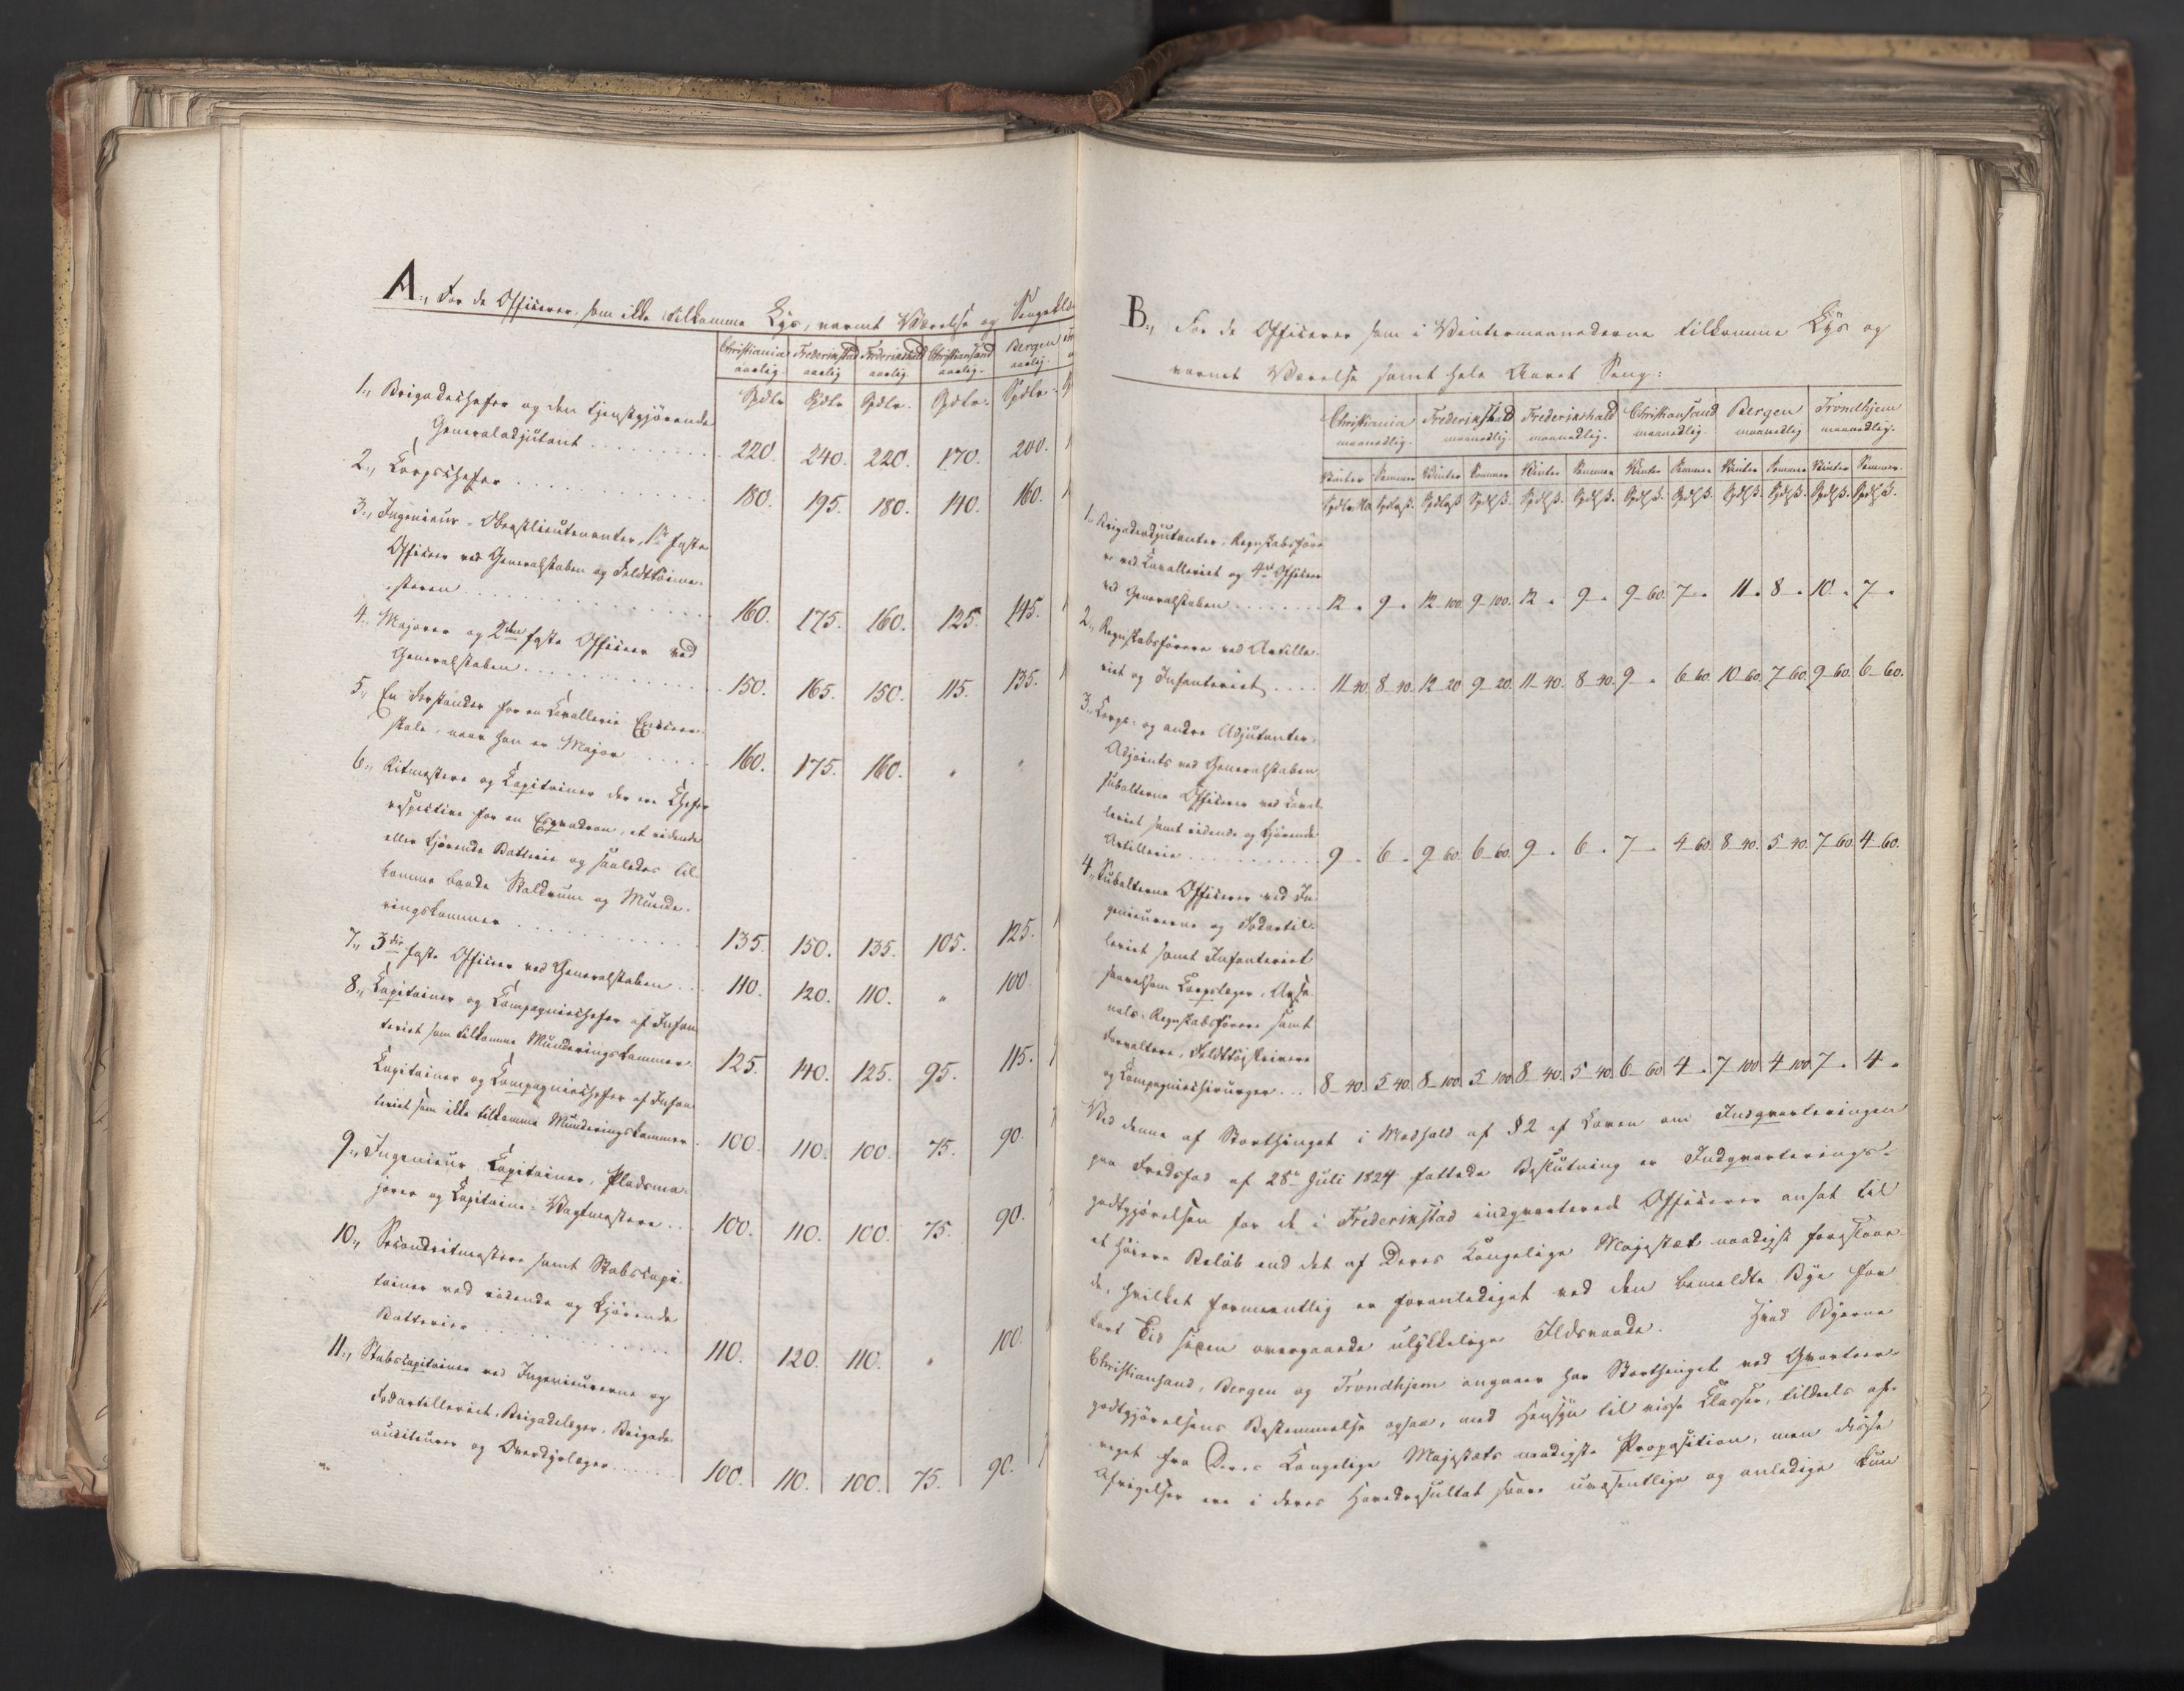 A., For de Officerer, som ikke tilkomme Lys, varmt Værelse og Sengeklæ
Christiania Frederikstad Frederikshald Christiansand Bergen
aarlig. aarlig aarlig aarlig. aarlig.
Spdlr Spdlr Spdlr. Spdlr. Spdlr.
1., Brigadechefer og den tjenstgjörende
Generaladjutant . . . . . . . 220. 240. 220. 170. 200.
2., Corpschefer . . . . . . . . . . . 180. 195. 180. 140. 160.
3., Ingenieur-Oberstlieutenanter, 1ste faste
Officier ved Generalstaben og Felttöime-
steren . . . . . . . . . . . . . 160. 175. 160. 125. 145.
4., Majorer og 2den faste Officier ved
Generalstaben . . . . . . . . . . 150. 165. 150. 115. 135.
5., En Forstander for en Cavallerie Exerceer-
skole, naar han er Major . . . . . 160. 175. 160. " "
6., Ritmestere og Capitainer der ere Chefer
respective for en Esqvadron, et ridende
eller kjörende Batterie og saaledes til-
komme baade Staldrum og Munde-
ringskammer . . . . . . . . . . 135. 150. 135. 105. 125.
7., 3die faste Officier ved Generalstaben . . . 110. 120. 110. " 100
8., Capitainer og Compagniechefer af Infan
teriet som tilkomme Munderingskammer. 125. 140. 125. 95. 115.
Capitainer og Compagniechefer af Infan
teriet som ikke tilkomme Munderingskammer. 100. 110. 100. 75. 90.
9., Ingenieur Capitainer, Pladsma-
jorer og Capitaine-Vagtmestere . . . 100. 110. 100. 75. 90.
10., Secondritmestere samt Stabscapi-
tainer ved ridende og kjörende
Batterier . . . . . . . . . . . . 110. 120. 110. " 100.
11., Stabscapitainer ved Ingenieurerne og
Fodartilleriet, Brigadelæger, Brigade-
auditeurer og Overdyrlæger . . . . . . 100. 110. 100. 75. 90.
B., For de Officerer som i Vintermaanederne tilkomme Lys og
varmt Værelse samt hele Aaret Seng:
Christiania Frederikstad Frederikshald Christiansand Bergen Trondhjem
maanedlig. maanedlig. maanedlig. maanedlig. maanedlig maanedlig.
Vinter Sommer Vinter Sommer Vinter Sommer Vinter Sommer Vinter Sommer Vinter Sommer.
1., Brigadeadjutanter, Regnskabsföre
re ved Cavalleriet og 4de Officier
ved Generalstaben . . . . . . . 12 " 9 " 12-100 9-100. 12 " 9 " 9-60. 7 " 11 " 8 " 10 " 7 "
2., Regnskabsförere ved Artille-
riet og Infanteriet . . . . 11-40. 8-40. 12-20 9-20. 11-40. 8-40. 9 " 6-60. 10-60. 7-60. 9-60. 6-60.
3., Corps- og andre Adjutanter,
Adjoints ved Generalstaben
subalterne Officier ved Caval-
leriet samt ridende og kjörende
Artillerie . . . . . . . . . . 9 " 6 " 9-60. 6-60. 9 " 6 " 7 " 4-60. 8-40. 5-40. 7-60. 4-60.
4., Subalterne Officier ved In-
genieurerne og Fodartil-
leriet samt Infanteriet
saavelsom Corpslæger, Arse-
nals-Regnskabsförere samt
Forvaltere, Felttöiskrivere
og Compagniechirurger . . . 8-40. 5-40. 8-100. 5-100 8-40. 5-40. 6-60. 4 " 7-100 4-100 7 " 4 "
Ved denne af Storthinget i Medhold af §2 af Loven om Indqvarteringen
paa Fredsfod af 28de Juli 1824 fattede Beslutning er Indqvarterings-
godtgjörelsen for de i Frederikstad indqvarterede Officierer ansat til
et höiere Belöb end det af Deres Kongelige Majestæt naadigst foreslaae-
de, hvilket formeentlig er foranlediget ved den bemeldte Bye for
kort Tid siden overgaaede ulykkelige Ildsvaade. Hvad Byerne
Christiansand, Bergen og Trondhjem angaaer har Storthinget ved Qvarteer-
godtgjörelsens Bestemmelse ogsaa, med Hensyn til visse Classer, tildeels af-
veget fra Deres Kongelige Majestæts naadigste Proposition, men disse
Afvigelser ere i deres Hovedresultat saare uvæsentlige og anledige kun